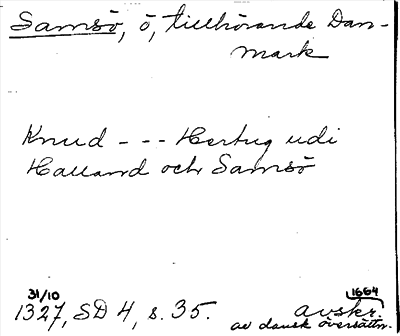 Samsö, ö, tillhörande Dan-
mark
Knud - - - Hertug udi
Halland och Samsö
31/10 1664
1327, SD 4, s. 35. avskr.
av dansk översättn.